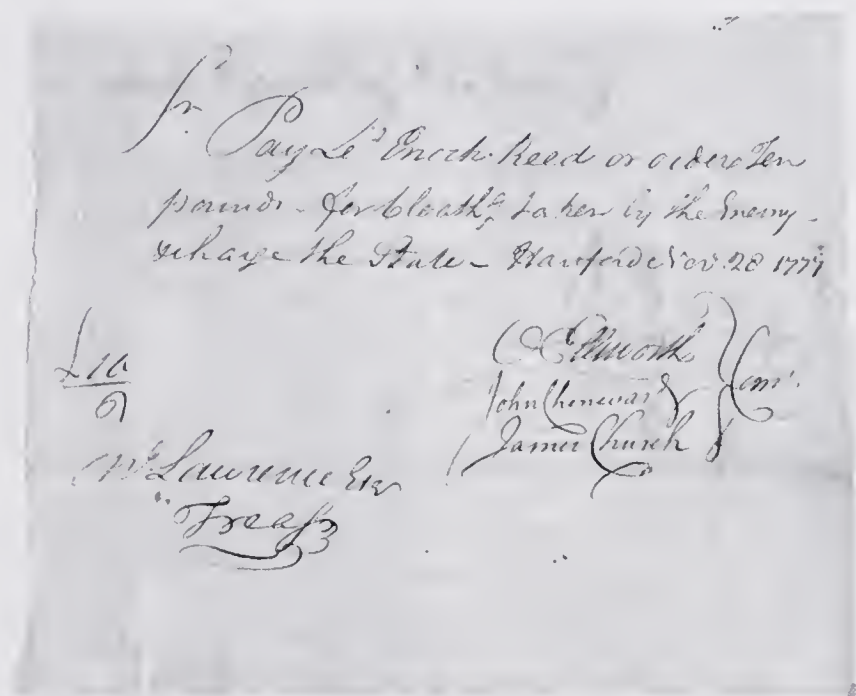 Sr. Pay Lt Enoch Reed or order Ten
pounds - for Cloathg taken by the Enemy -
& charge the State - Hartford Nov. 28 1777
£10
O Ellsworth
John Chenevard
James Church
Comt.
Lawrence Esq
Treasr